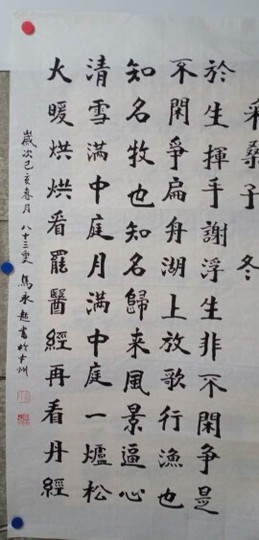 采桑子 冬
於生揮手謝浮生非不閑爭是
不閑爭扁舟湖上放歌行漁也
知名牧也知名歸來風景逼心
清雪滿中庭月滿中庭一爐松
火暖烘烘看罷醫經再看丹經
歲次己亥春月 八十三叟 馬永超書於州